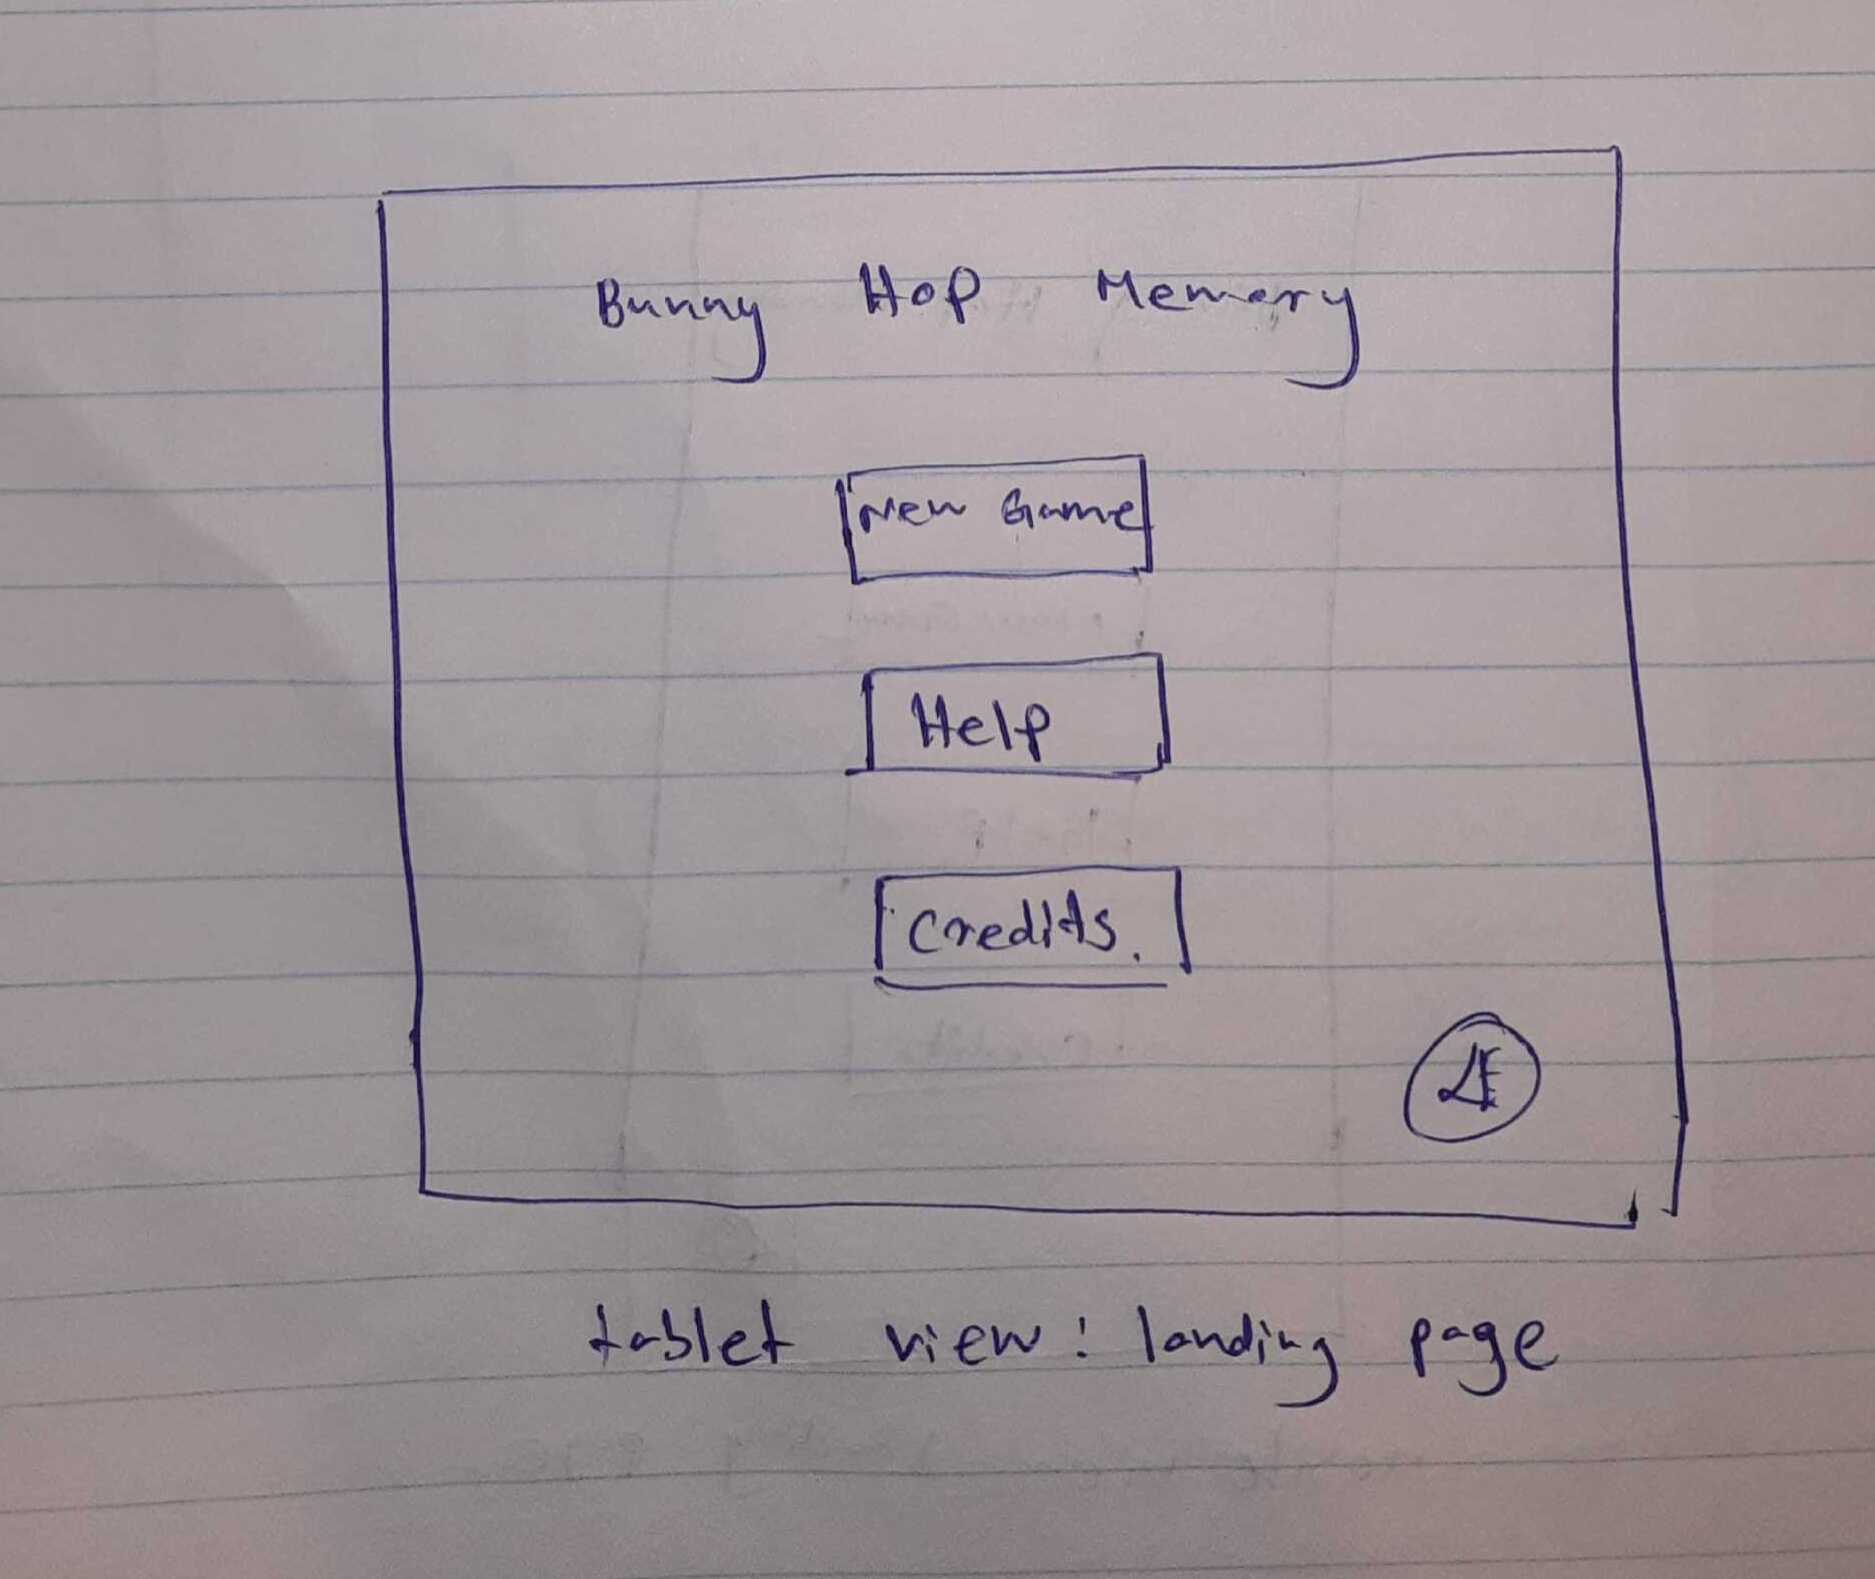 Bunny Hop Memory
New Game
Help
Credits.
tablet view: landing page